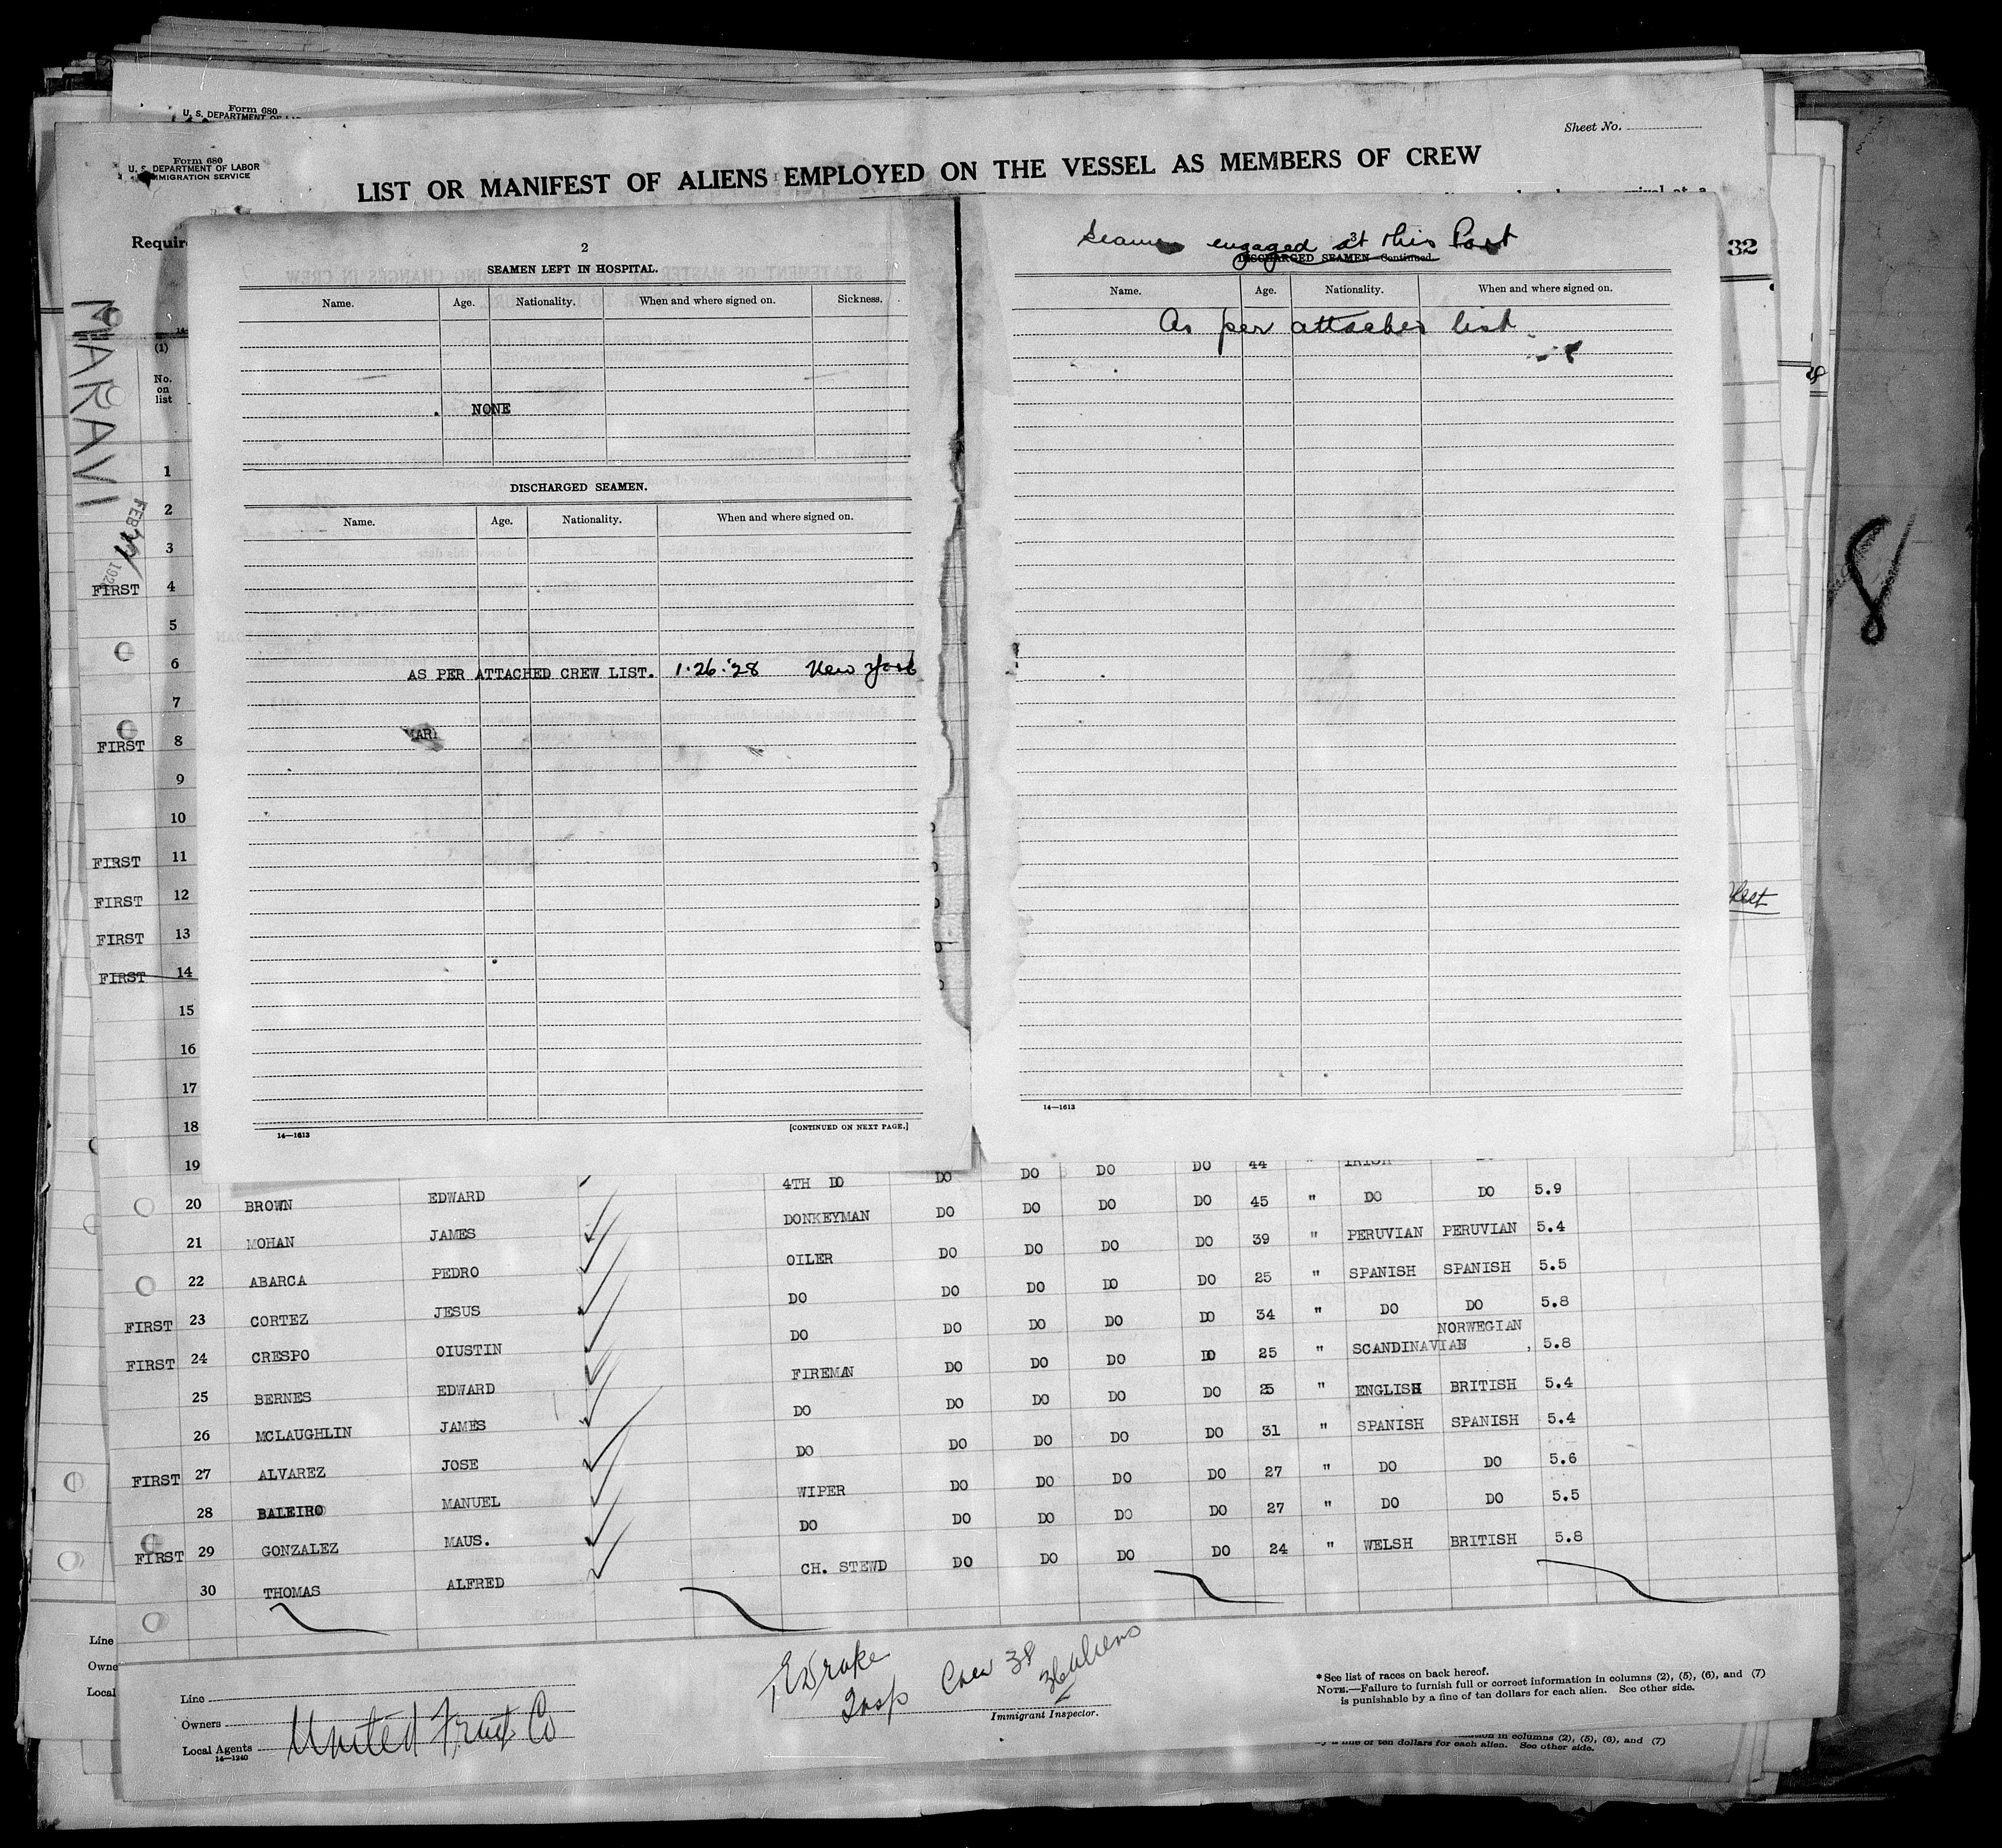 Form 680
U. S. DEPARTMENT OF
Form 680
U. S. DEPARTMENT OF LABOR
IMMIGRATION SERVICE
Sheet No.
LIST OR MANIFEST OF ALIENS EMPLOYED ON THE VESSEL AS MEMBERS OF CREW
arrival at a
Requir
32
MARAVI
FEB 1928
(1)
No. on list
2
SEAMEN LEFT IN HOSPITAL.
Name. Age. Nationality. When and where signed on. Sickness.
NONE
DISCHARGED SEAMEN.
Name. Age. Nationality. When and where signed on.
AS PER ATTACHED CREW LIST. 1.26.'28 New York
MAR
14—1613 [CONTINUED ON NEXT PAGE.]
3
Seamen engaged at this Port
DISCHARGED SEAMEN—Continued.
Name. Age. Nationality. When and where signed on.
As per attached list
14—1613
8
1
2
3
FIRST 4
5
6
7
FIRST 8
9
10
FIRST 11
FIRST 12
FIRST 13
FIRST 14
15
16
17
18
19 DO DO DO DO 44 " IRISH
20 BROWN EDWARD 4TH DO DO DO DO DO 45 " DO DO 5.9
21 MOHAN JAMES DONKEYMAN DO DO DO DO 39 " PERUVIAN PERUVIAN 5.4
22 ABARCA PEDRO OILER DO DO DO DO 25 " SPANISH SPANISH 5.5
FIRST 23 CORTEZ JESUS DO DO DO DO DO 34 " DO DO 5.8
FIRST 24 CRESPO OIUSTIN DO DO DO DO DO 25 " SCANDINAVIAN NORWEGIAN 5.8
25 BERNES EDWARD FIREMAN DO DO DO DO 25 " ENGLISH BRITISH 5.4
26 MCLAUGHLIN JAMES DO DO DO DO DO 31 " SPANISH SPANISH 5.4
FIRST 27 ALVAREZ JOSE DO DO DO DO DO 27 " DO DO 5.6
28 BALEIRO MANUEL WIPER DO DO DO DO 27 " DO DO 5.5
FIRST 29 GONZALEZ MAUS. DO DO DO DO DO 24 " WELSH BRITISH 5.8
30 THOMAS ALFRED CH. STEWD DO DO DO DO
Line
Owne
Local
Line
Owners
Local Agents United Fruit Co
14—1240
T. E. Drake
Insp Crew 38
36 aliens
Immigrant Inspector.
*See list of races on back hereof.
NOTE.—Failure to furnish full or correct information in columns (2), (5), (6), and (7)
is punishable by a fine of ten dollars for each alien. See other side.
in columns (2), (5), (6), and (7)
by a fine of ten dollars for each alien. See other side.